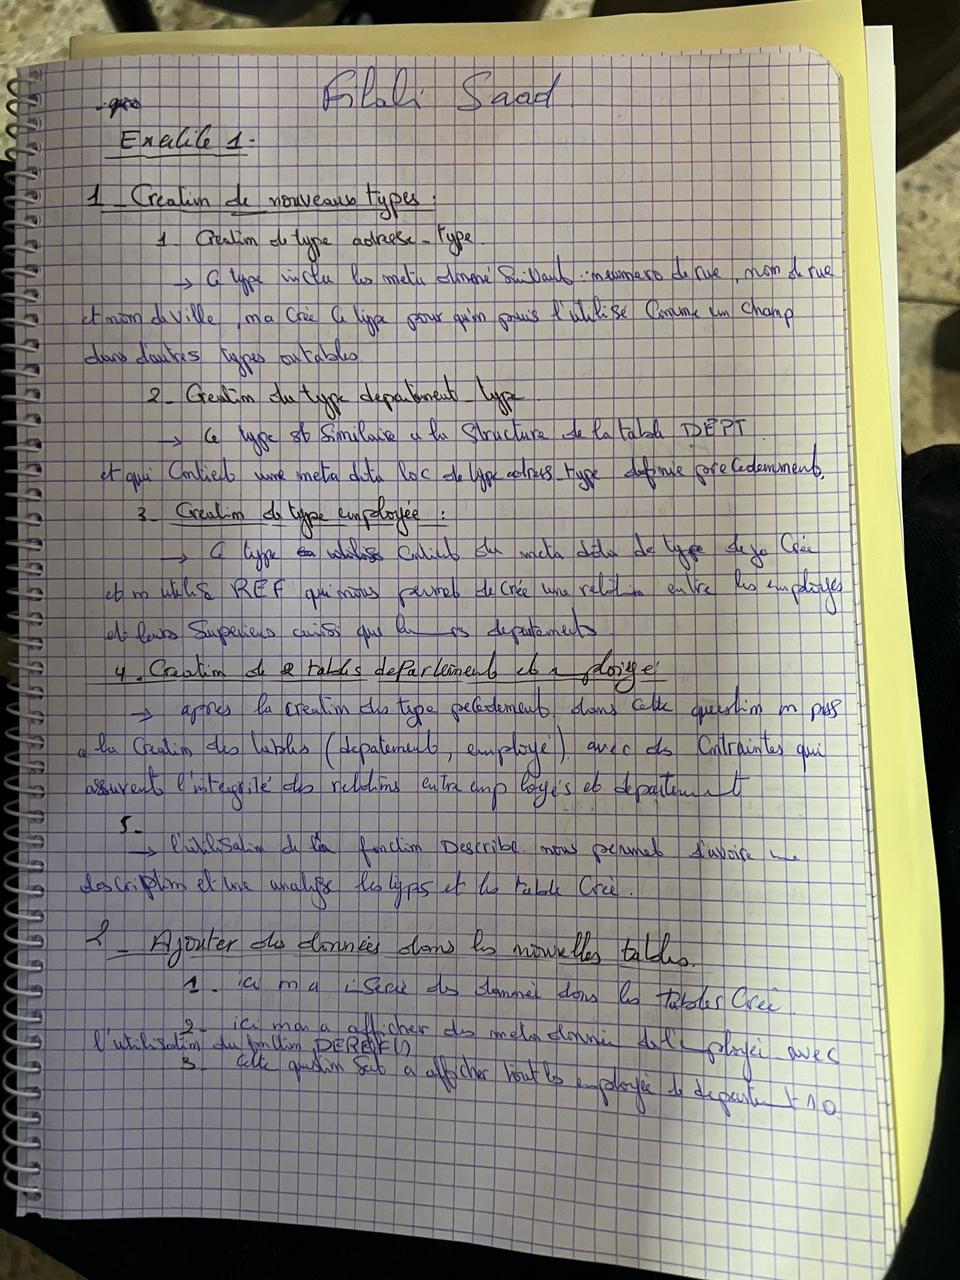 Filali Saad
Exercice 1:
1_ Creation de nouveaux types:
1_ Creation de type adresse_type
→ Ce type inclu les meta donné Suivants: numero de rue, nom de rue
et nom de ville, on a Crée Ce type pour qu'on puis l'utilisé Comme un champ
dans d'autres types ou tables
2_ Creation du type departement_type
→ Ce type est Similaire a la Structure de la table DEPT
et qui Contient une meta data loc de type adress_type definie precedemment,
3_ Creation de type employée:
→ Ce type Contient du meta data de type deja Crée
et on utilis REF qui nous permet de crée une relation entre les employés
et leurs Superieurs ainsi que departements
4. Creation de 2 tables departement et employé
→ apres la creation des type precedement, dans Cette question on pass
a la Creation des tables (departement, employé) avec des Contraintes qui
assurent l'integrité des relations entre employés et departement
5_
→ l'utilisation de la fonction Describe nous permet d'avoire une
descriptions et une analyse les types et les table Crée.
2_ Ajouter des données dans les nouvelles tables.
1. ici on a inseré des donneé dans les tables Creé
2_ ici on a afficher des meta donnée de l'employé avec
l'utilisation du fonction DEREF()
3_ Cette question Sert a afficher tout les employée de departement 10